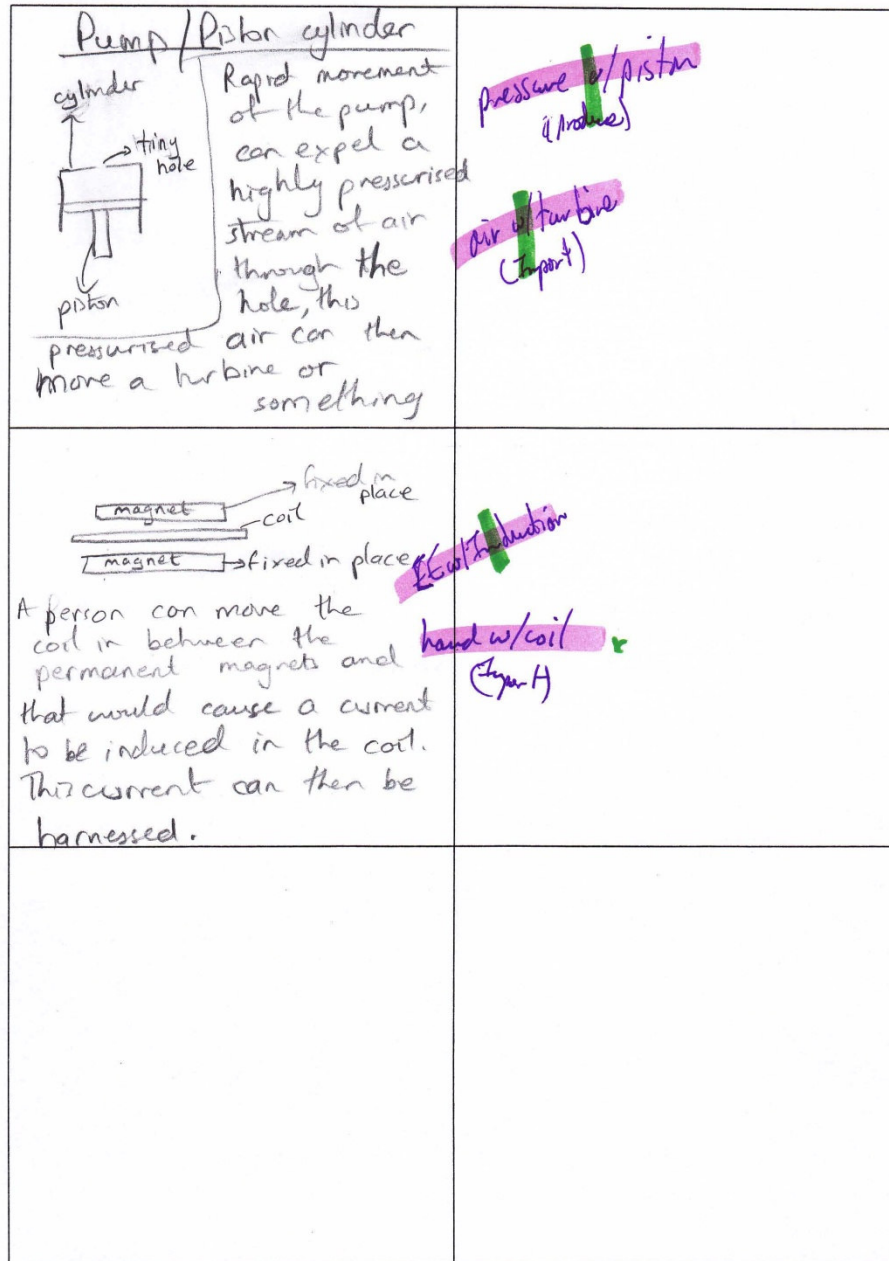 Pump/Piston cylinder
cylinder
tiny
hole
piston
Rapid movement
of the pump,
can expel a
highly pressurised
stream of air
through the
hole, this
pressurised air can then
move a turbine or
something
pressure w/piston
(Produce)
air w/turbine
(Import)
magnet
fixed in
place
coil
magnet
fixed in place
A person can move the
coil in between the
permanent magnets and
that would cause a current
to be induced in the coil.
This current can then be
harnessed.
w/Induction
hand w/coil
(Import)